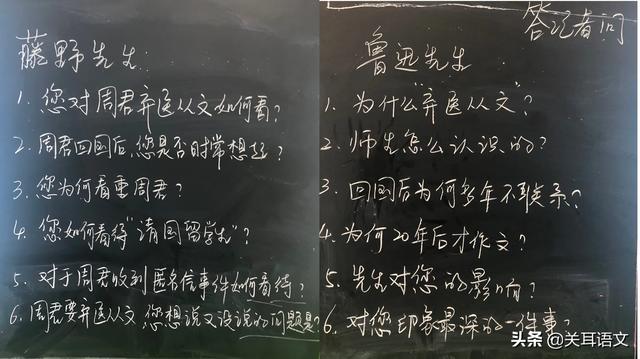 答记者问
藤野先生:
1. 您对周君弃医从文如何看?
2. 周君回国后,您是否时常想起?
3. 您为何看重周君?
4. 您如何看待"清国留学生"?
5. 对于周君收到匿名信事件如何看待?
6. 周君要弃医从文,您想说又没说的问题是?
鲁迅先生
1. 为什么"弃医从文"?
2. 师生怎么认识的?
3. 回国后为何多年不联系?
4. 为何20年后才作文?
5. 先生对您的影响?
6. 对您印象最深的一件事?
头条 @关耳语文